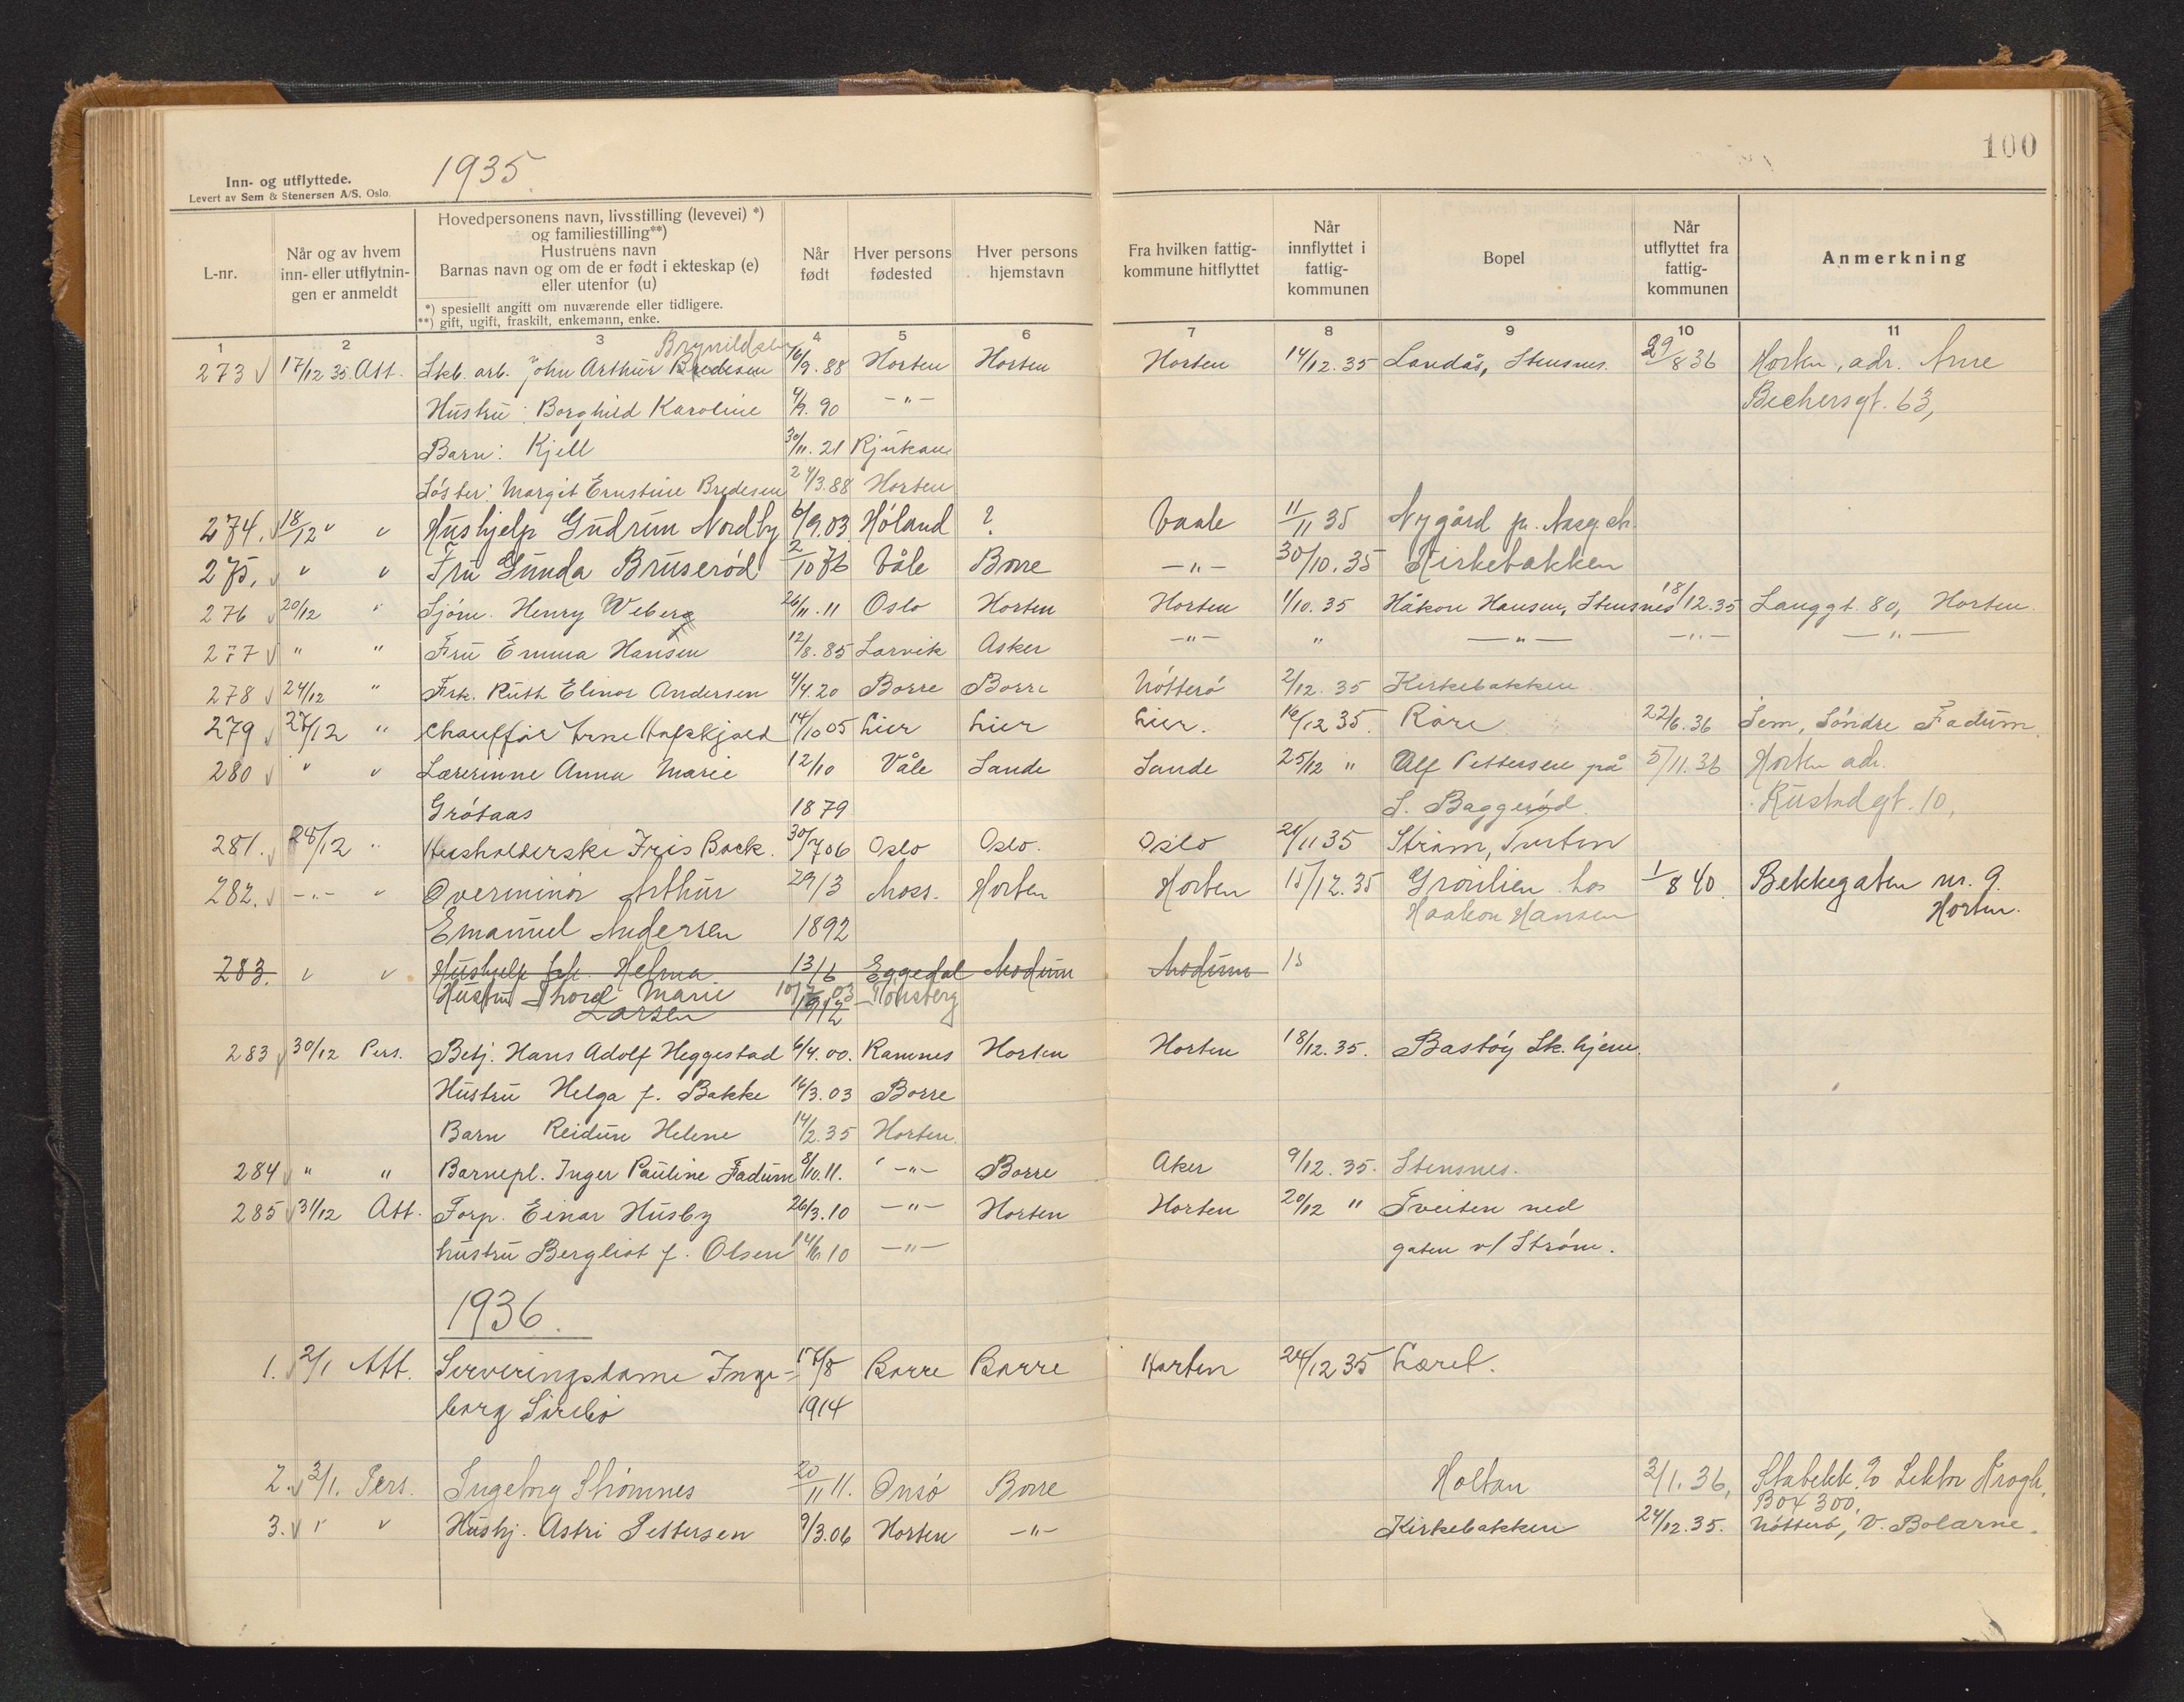 100
1935.
Inn- og utflyttede.
Levert av Sem & Stenersen A/S, Oslo.
L-nr. Når og av hvem inn- eller utflytnin-gen er anmeldt Hovedpersonens navn, livsstilling (levevei) *) og familiestilling**) Hustruens navn Barnas navn og om de er født i ekteskap (e) eller utenfor (u) Når født Hver persons fødested Hver persons hjemstavn Fra hvilken fattig-kommune hitflyttet Når innflyttet i fattig-kommunen Bopel Når utflyttet fra fattig-kommunen Anmerkning
*) spesiellt angitt om nuværende eller tidligere.
**) gift, ugift, fraskilt, enkemann, enke.
1 2 3 4 5 6 7 8 9 10 11
273 17/12 35. Att. arb. John Arthur Bredesen 88 Horten Horten Horten 14/12.35 Landås, Stensnes. 29/8 36 Horten, adr. Arne
Hustru: Borghild Karoline 90 -"- Bechersgt. 63,
Barn: Kjell 30/11.21 Rjukan
Søster: Margit Ernstine Bredesen 24/3.88 Horten
274. 18/12 " " Hushjelp Gudrun Nordby 6/9.03 Høland ? Vaale 11/11 35 Nygård
275. " " Fru Gunda Bruserød 2/10 76 Våle Borre -"- 30/10.35 Kirkebakken
276 20/12 " Sjøm. Henry Weberg 26/11.11 Oslo Horten Horten 1/10.35 Håkon Hansen, Stensnes 18/12.35 Langgt. 80, Horten.
277 " " Fru Emma Hansen 12/8.85 Larvik Asker -"- " -"- -"- -"-
278 24/12 " Frk. Ruth Elinor Andersen 4/4.20 Borre Borre Nøtterø 2/12.35 Kirkebakken
279 27/12 " Chauffør Arne 14/10 05 Lier Lier Lier. 16/12 35. Røre 22/6.36 Sem, Søndre Fadum.
280 " " Lærerinne Anna Marie 12/10 Våle Sande Sande 25/12 " Alf Pettersen på 5/11.36 Horten adr.
Grøtaas 1879 S. Baggerød. Rustadgt. 10,
281. 28/12 " Husholderske Iris Bock. 30/7 06 Oslo Oslo. Oslo 35 Strøm,
282. -"- " Overminør Arthur 29/3 Moss. Horten Horten 15/12.35 Grønlien hos 1/8 40. Bekkegaten nr. 9.
Emanuel Andersen 1892 Haakon Hansen Horten.
283. " " Hushjelp frk. Helma 13/6 Eggedal Modum Modum 15
Hustru Thora Marie 03 Tønsberg
Larsen 1912
283 30/12 Pers. Betj. Hans Adolf Heggestad 6/4.00. Ramnes Horten Horten 18/12.35. Bastøy Sk.hjem.
Hustru Helga f. Bakke 16/3.03 Borre
Barn Reidun Helene 14/2.35 Horten.
284 " " Barnepl. Inger Pauline Fadum 8/10.11. -"- Borre Aker 9/12.35. Stensnes.
285 31/12 Att. Forp. Einar Husby 26/3.10 -"- Horten Horten 20/12 " Tveiten ned
hustru Bergliot f. Olsen 14/6.10 -"- gaten v/ Strøm.
1936.
1. 2/1 Att. Serveringsdame Inge- 17/8 Borre Borre Horten 24/12 35
borg Sørebø 1914
2. 3/1. Pers. Ingeborg Strømnes 20/11 11. Onsø Borre Holtan 3/1.36, Stabekk c/o Lektor Krogh,
Box 300,
3. " " Hushj. Astri Pettersen 9/3.06 Horten -"- Kirkebakken 24/12.35. Nøtterø, V. Bolærne.